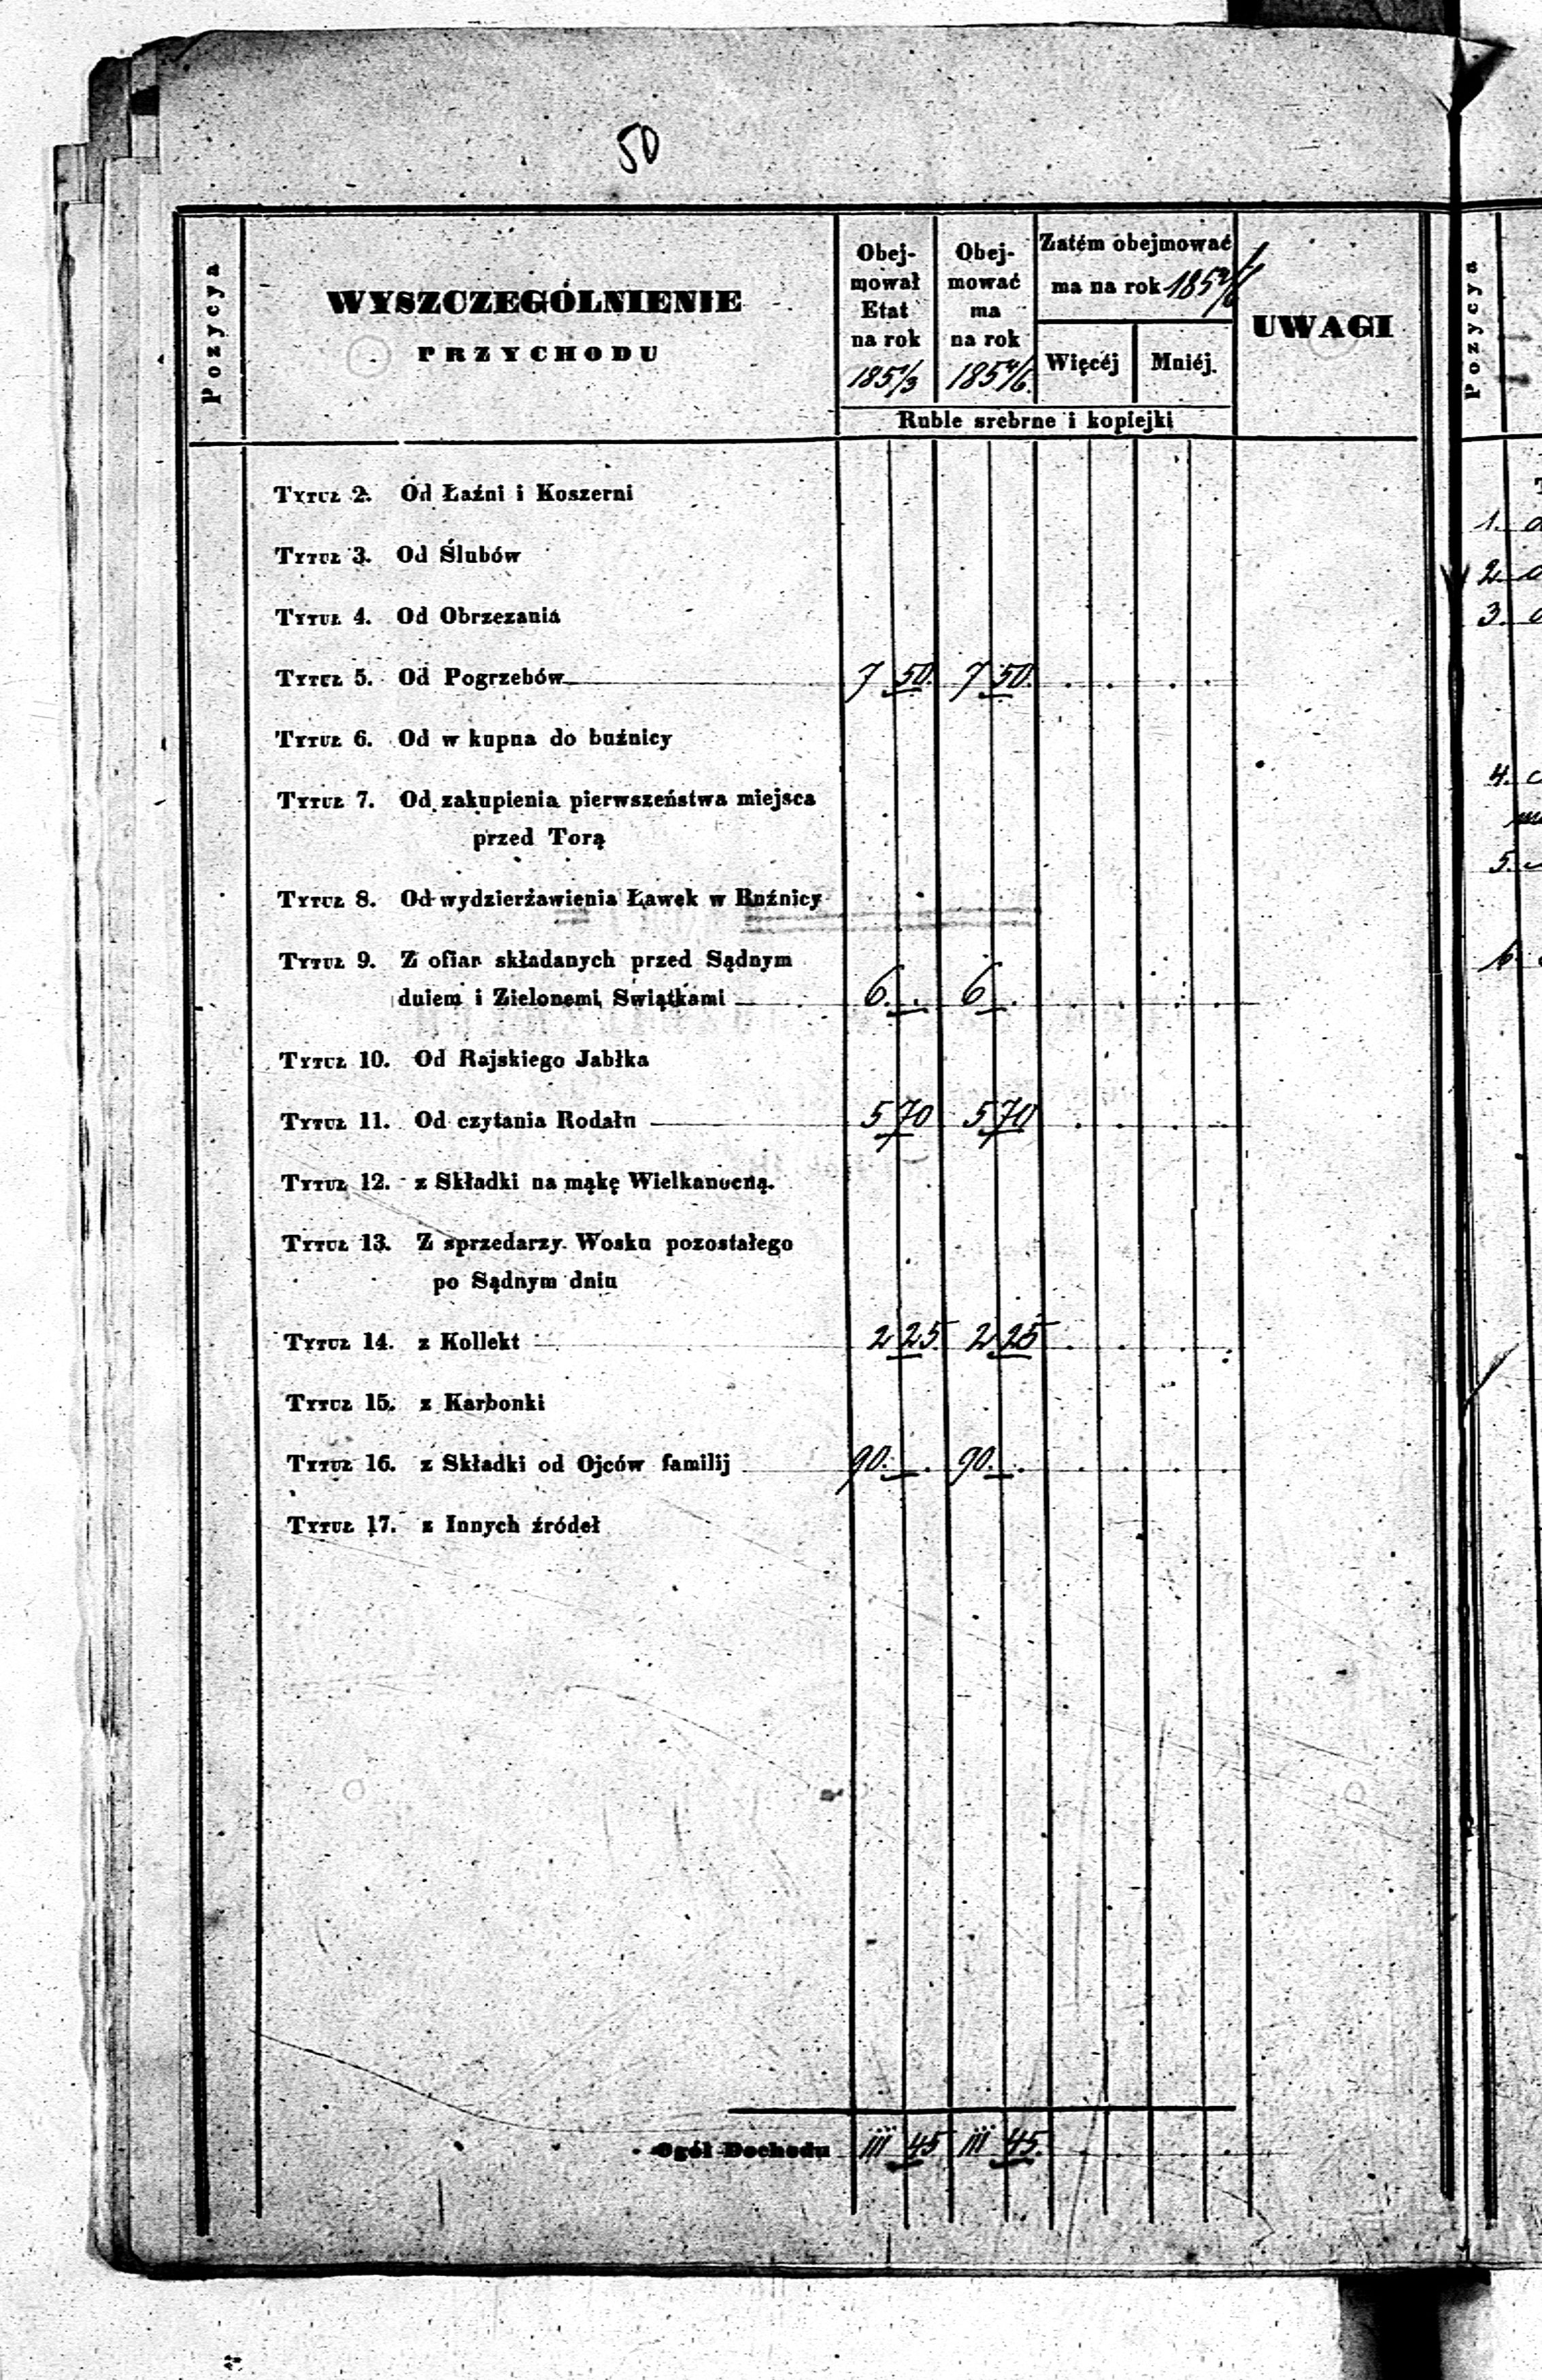 50
Pozycya
WYSZCZEGÓLNIENIE
PRZYCHODU
Obej-
mował
Etat
na rok
185 1/3
Obej-
mować
ma
na rok
185 4/6.
Zatém obejmować
ma na rok 185 4/6
Więcéj
Mniéj.
Ruble srebrne i kopiejki
UWAGI
Pozycya
Tytuł 2. Od Łaźni i Koszerni
Tytuł 3. Od Ślubów
Tytuł 4. Od Obrzezania
Tytuł 5. Od Pogrzebów 7 50. 7 50.
Tytuł 6. Od w kupna do buźnicy
Tytuł 7. Od zakupienia pierwszeństwa miejsca
przed Torą
Tytuł 8. Od wydzierżawienia Ławek w Buźnicy
Tytuł 9. Z ofiar składanych przed Sądnym
dniem i Zielonemi Swiątkami 6. 6
Tytuł 10. Od Rajskiego Jabłka
Tytuł 11. Od czytania Rodału 5 70 5 70
Tytuł 12. z Składki na mąkę Wielkanocną.
Tytuł 13. Z sprzedarzy Wosku pozostałego
po Sądnym dniu
Tytuł 14. z Kollekt 2 25. 2 25
Tytuł 15. z Karbonki
Tytuł 16. z Składki od Ojców familij 90. 90.
Tytuł 17. z Innych źródeł
Ogół Dochodu 111 45 111 45.
1.
2.
3.
4.
5.
6.